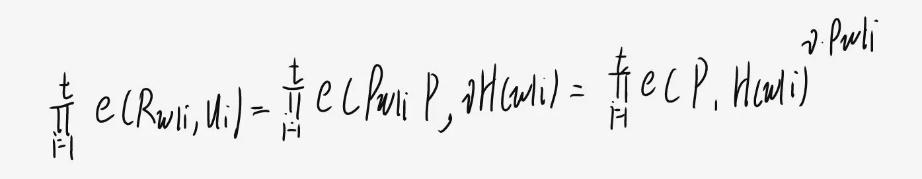 ∏_{i=1}^{t} e(R_{w|i}, U_i) = ∏_{i=1}^{t} e(P_{w|i} P, νH(w|i)) = ∏_{i=1}^{t} e(P, H(w|i))^{ν·P_{w|i}}